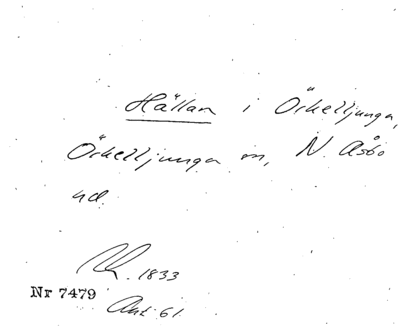 Hällan i Örkelljunga,
Örkelljunga sn, N. Åsbo
hd.
Rk. 1833
Nr 7479
Akt 61.